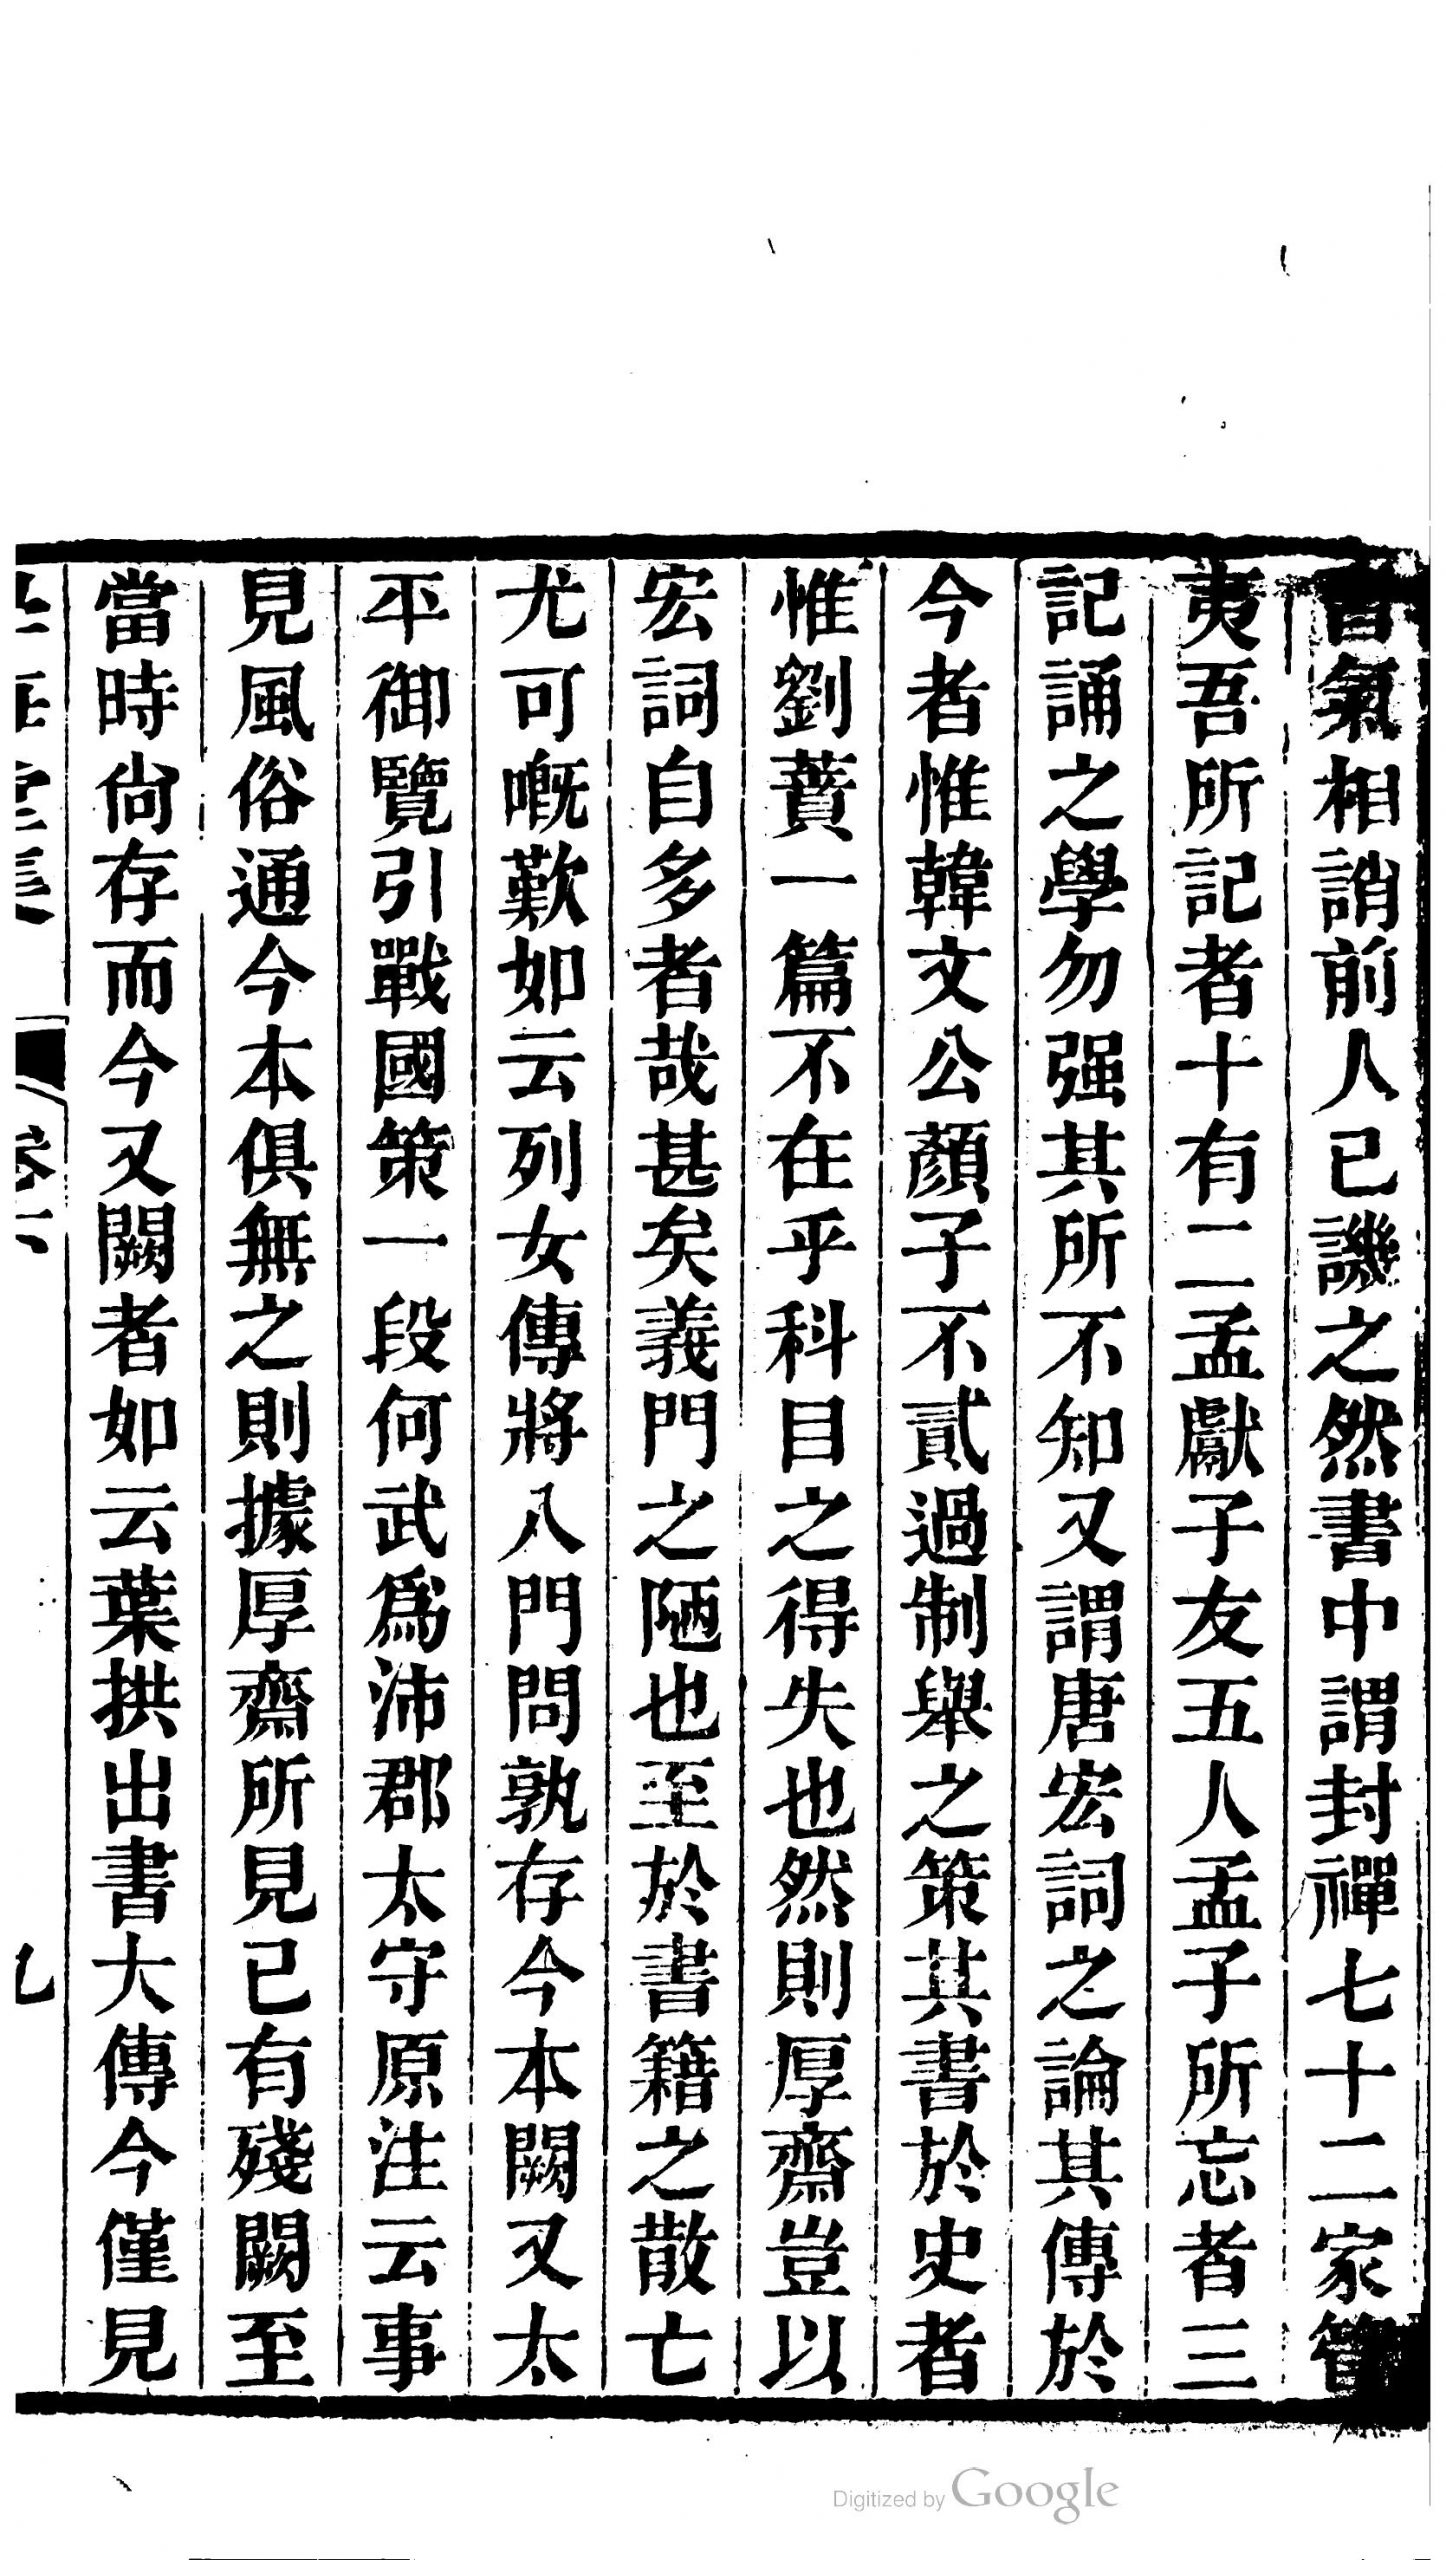 習氣相誚前人已譏之然書中謂封禪七十二家管
夷吾所記者十有二孟獻子友五人孟子所忘者三
記誦之學勿强其所不知又謂唐宏詞之論其傳於
今者惟韓文公顏子不貳過制舉之策其書於史者
惟劉蕡一篇不在乎科目之得失也然則厚齋豈以
宏詞自多者哉甚矣義門之陋也至於書籍之散亡
尤可嘅歎如云列女傳將入門問孰存今本闕又太
平御覽引戰國策一段何武爲沛郡太守原注云事
見風俗通今本俱無之則據厚齋所見已有殘闕至
當時尙存而今又闕者如云葉拱出書大傳今僅見
卷一
九
Digitized by Google